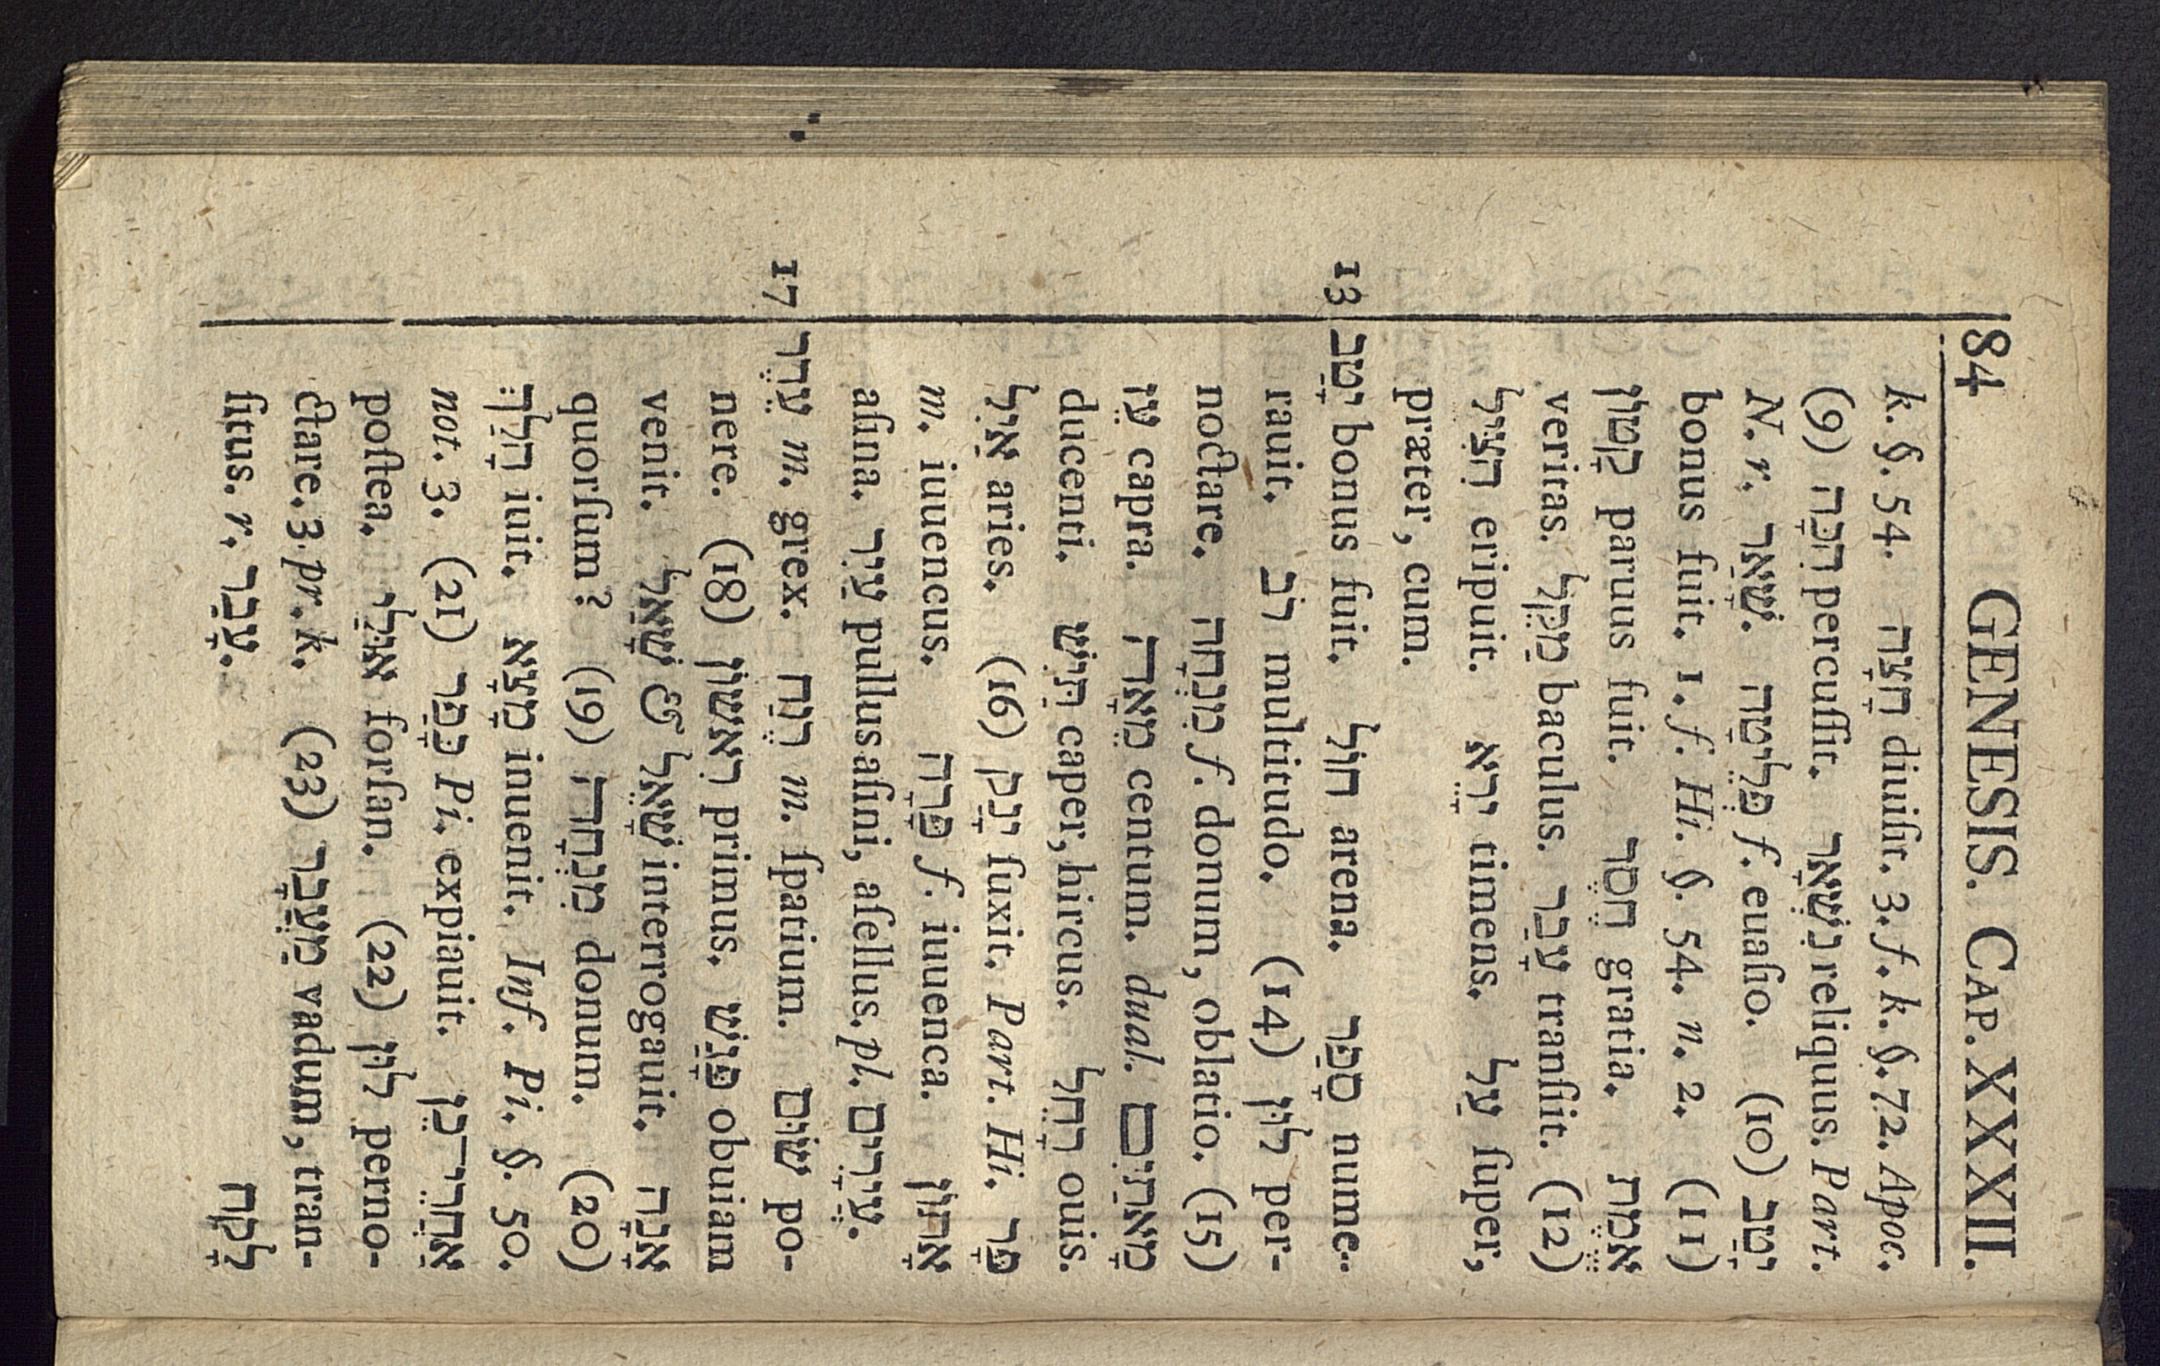 84 GENESIS. CAP. XXXII.
k. §. 54. חָצָה diuiſit. 3. f. k. §. 72. Apoc.
(9) הִכָּה percuſſit. נִשְׁאָר reliquus. Part.
N. r. שָׁאַר. פְּלֵיטָה f. euaſio. (10) יָטַב
bonus fuit. 1. f. Hi. §. 54. n. 2. (11)
קָטוֹן paruus fuit. חֶסֶד gratia. אֱמֶת
veritas. מַקֵּל baculus. עָבַר tranſiit. (12)
הִצִּיל eripuit. יָרֵא timens. עַל ſuper,
præter, cum.
13 יָטַב bonus fuit. חוֹל arena. סָפַר nume-
rauit. רֹב multitudo. (14) לוּן per-
noctare. מִנְחָה f. donum, oblatio. (15)
עֵז capra. מֵאָה centum. dual. מָאתַיִם
ducenti. תַּיִשׁ caper, hircus. רָחֵל ouis.
אַיִל aries. (16) יָנַק ſuxit. Part. Hi. פַּר
m. iuuencus. פָּרָה f. iuuenca. אָתוֹן
aſina. עַיִר pullus aſini, aſellus. pl. עֲיָרִים.
17 עֵדֶר m. grex. רֶוַח m. ſpatium. שׂוּם po-
nere. (18) רִאשׁוֹן primus. פָּגַשׁ obuiam
venit. שָׁאַל & שָׁאֵל interrogauit. אָנָה
quorſum? (19) מִנְחָה donum. (20)
הָלַךְ iuit. מָצָא inuenit. Inf. Pi. §. 50.
not. 3. (21) כָּפַר Pi. expiauit. אַחֲרֵי־כֵן
poſtea. אוּלַי forſan. (22) לוּן perno-
ctare. 3. pr. k. (23) מַעֲבָר vadum, tran-
ſitus. r. עָבַר.
לָקַח